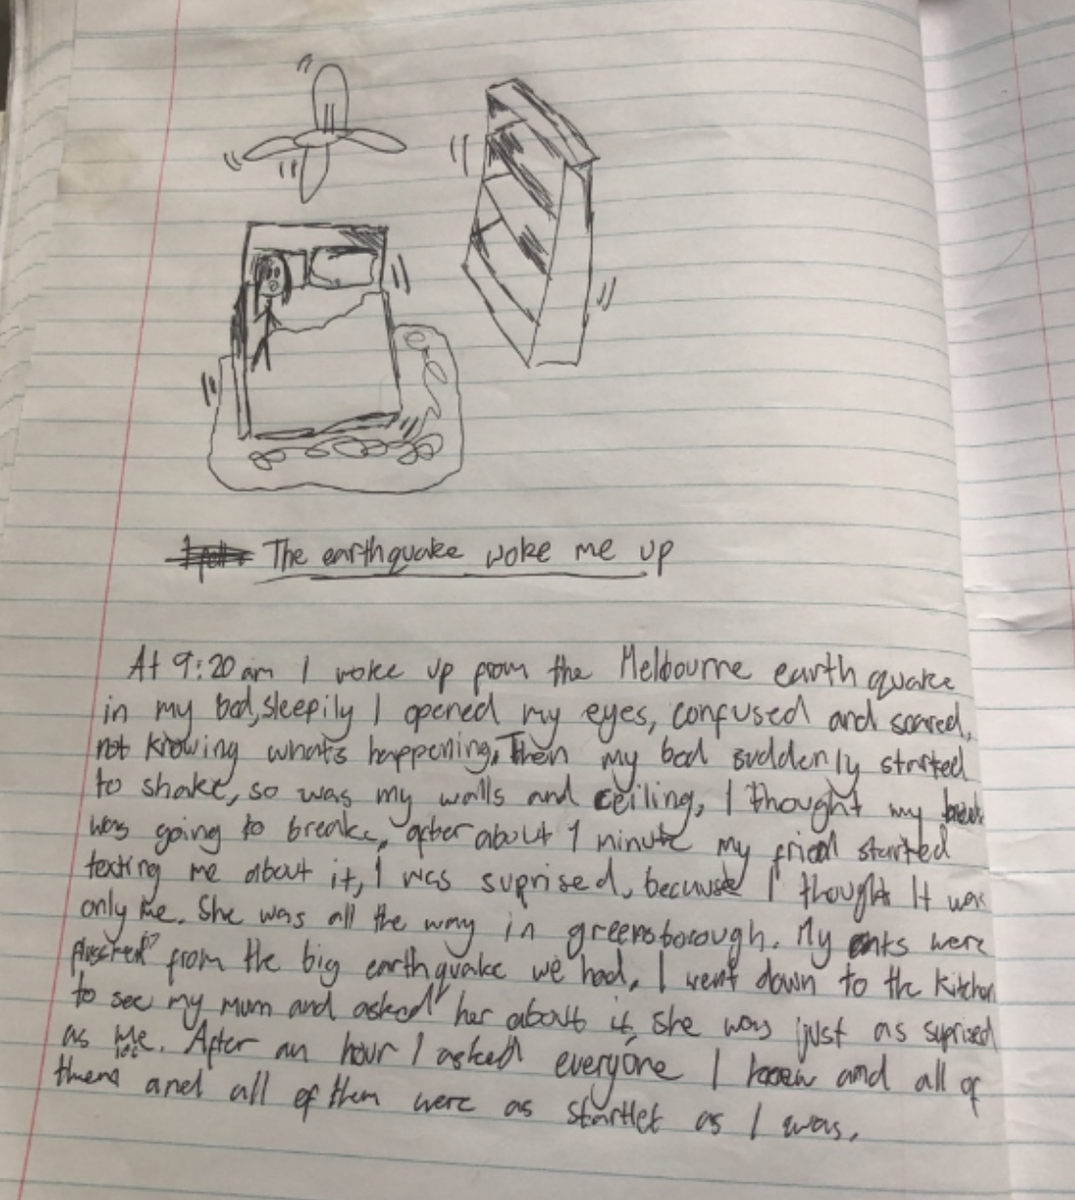 The earthquake woke me up
At 9:20 am I woke up from the Melbourne earth quake
in my bed, sleepily I opened my eyes, confused and scared,
not knowing what's happening, Then my bed suddenly started
to shake, so was my walls and ceiling, I thought my
was going to breake, after about 1 minute my friend started
texting me about it, I was suprised, because I thought It was
only me. She was all the way in greensborough. My were
from the big earthquake we had, I went down to the kitchen
to see my mum and asked her about it, she was just as suprized
as me. After an hour I asked everyone I know and all of
them and all of them were as startlet as I was.